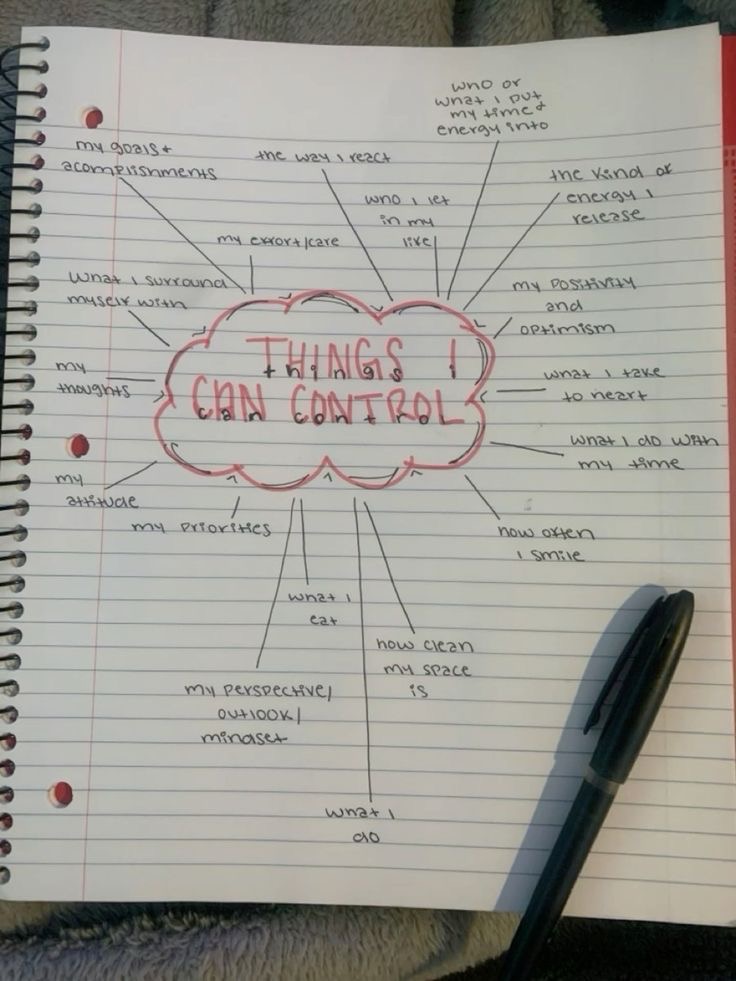 who or
what I put
my time &
energy into
my goals &
acomplishments
the way I react
the kind of
energy I
release
who I let
in my
life
my effort/care
what I surround
myself with
my positivity
and
optimism
THINGS I
things I
CAN CONTROL
can control
my
thoughts
what I take
to heart
what I do with
my time
my
attitude
my priorities
how often
I smile
what I
eat
how clean
my space
is
my perspective/
outlook/
mindset
what I
do